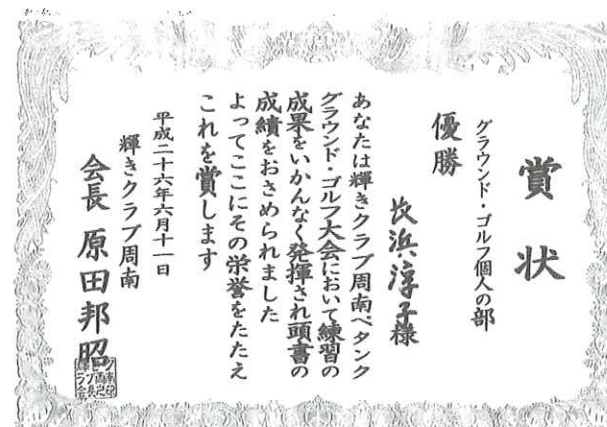 賞状
グラウンド・ゴルフ個人の部
優勝
浜淳子様
あなたは輝きクラブ周南ペタンク
グラウンド・ゴルフ大会において練習の
成果をいかんなく発揮され頭書の
成績をおさめられました
よってここにその栄誉をたたえ
これを賞します
平成二十六年六月十一日
輝きクラブ周南
会長 原田邦昭